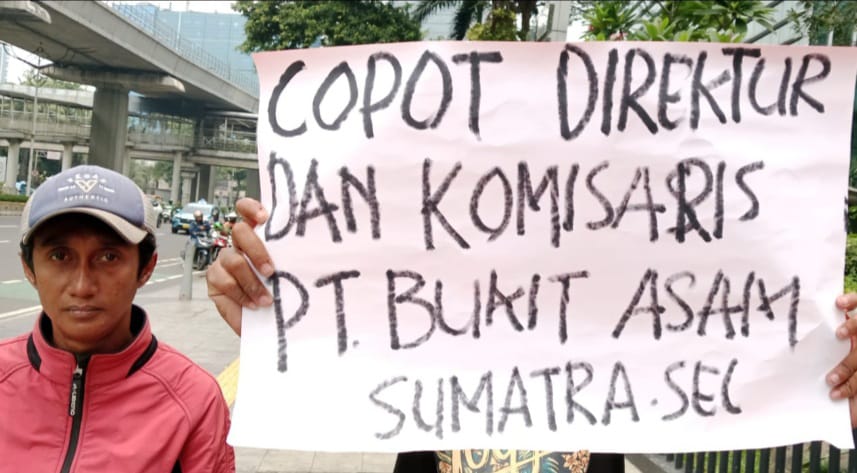 COPOT DIREKTUR
DAN KOMISARIS
PT. BUKIT ASAM
SUMATRA.SEL
AUTHENTIC